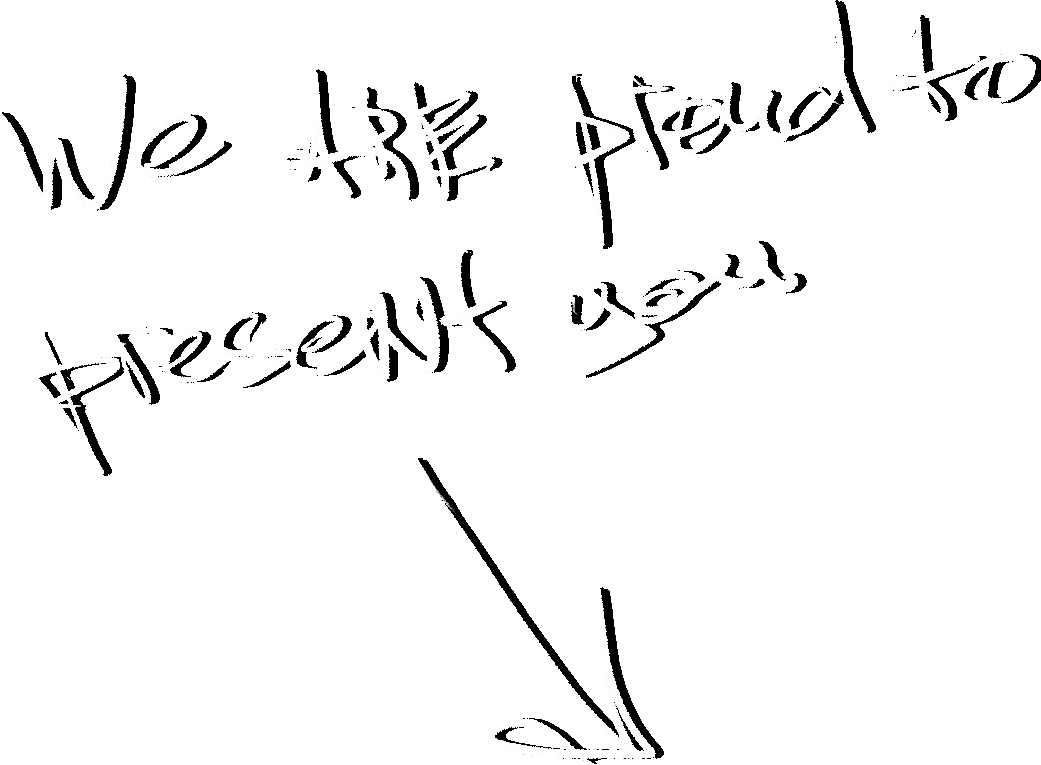 We ARE proud to
present you